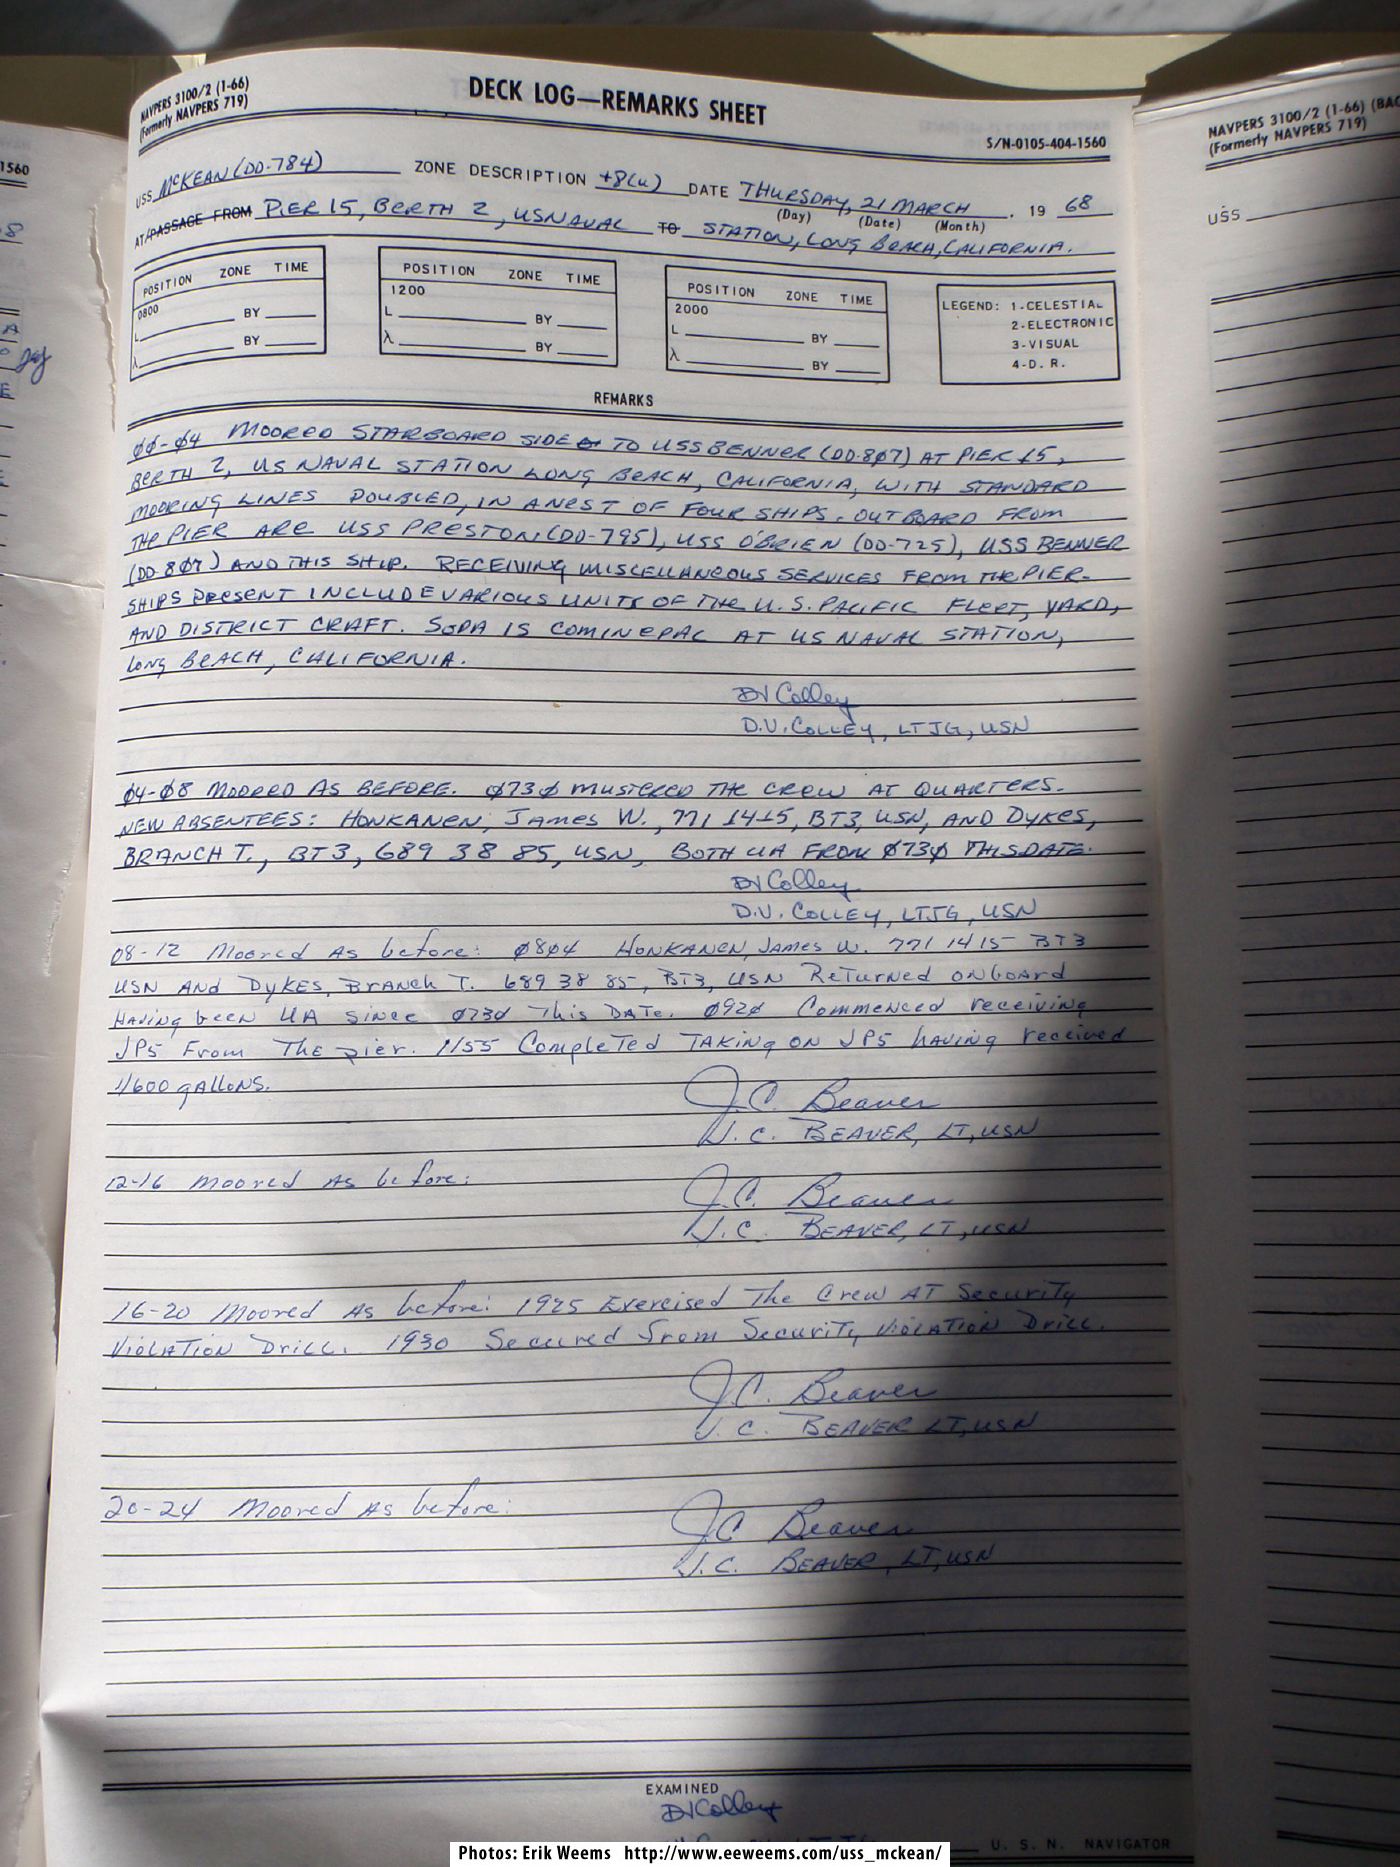 NAVPERS 3100/2 (1-66)
(Formerly NAVPERS 719)
DECK LOG—REMARKS SHEET
S/N-0105-404-1560
USS McKEAN (DD-784) ZONE DESCRIPTION +8(U) DATE THURSDAY, 21 MARCH . 19 68
(Day) (Date) (Month)
AT/PASSAGE FROM PIER 15, BERTH 2, US NAVAL TO STATION, LONG BEACH, CALIFORNIA.
POSITION ZONE TIME
0800
L BY
λ BY
POSITION ZONE TIME
1200
L BY
λ BY
POSITION ZONE TIME
2000
L BY
λ BY
LEGEND: 1-CELESTIAL
2-ELECTRONIC
3-VISUAL
4-D. R.
REMARKS
00-04 MOORED STARBOARD SIDE TO USS BENNER (DD-807) AT PIER 15,
BERTH 2, US NAVAL STATION LONG BEACH, CALIFORNIA, WITH STANDARD
MOORING LINES DOUBLED, IN A NEST OF FOUR SHIPS. OUTBOARD FROM
THE PIER ARE USS PRESTON (DD-795), USS O'BRIEN (DD-725), USS BENNER
(DD-807) AND THIS SHIP. RECEIVING MISCELLANEOUS SERVICES FROM THE PIER.
SHIPS PRESENT INCLUDE VARIOUS UNITS OF THE U.S. PACIFIC FLEET, YARD,
AND DISTRICT CRAFT. SOPA IS COMINEPAC AT US NAVAL STATION,
LONG BEACH, CALIFORNIA.
DV Colley
D.V. COLLEY, LTJG, USN
04-08 MOORED AS BEFORE. 0730 MUSTERED THE CREW AT QUARTERS.
NEW ABSENTEES: HONKANEN, JAMES W., 771 14 15, BT3, USN, AND DYKES,
BRANCH T., BT3, 689 38 85, USN, BOTH UA FROM 0730 THIS DATE.
DV Colley
D.V. COLLEY, LTJG, USN
08-12 Moored As before: 0804 HONKANEN, JAMES W. 771 14 15 BT3
USN AND DYKES, BRANCH T. 689 38 85, BT3, USN Returned onboard
Having been UA since 0730 This DATE. 0920 Commenced receiving
JP5 From The pier. 1155 Completed TAKING ON JP5 having received
11600 gALLONS.
J.C. Beaver
J. C. BEAVER, LT, USN
12-16 Moored As before:
J.C. Beaver
J. C. BEAVER, LT, USN
16-20 Moored As before: 1925 Exercised The Crew AT Security
VIOLATION DRILL. 1930 Secured from Security VIOLATION DRILL.
J.C. Beaver
J. C. BEAVER LT, USN
20-24 Moored As before:
J.C Beaver
J. C. BEAVER, LT, USN
EXAMINED
DV Colley
U. S. N. NAVIGATOR
NAVPERS 3100/2 (1-66) (BAC
(Formerly NAVPERS 719)
USS
1560
Photos: Erik Weems http://www.eeweems.com/uss_mckean/